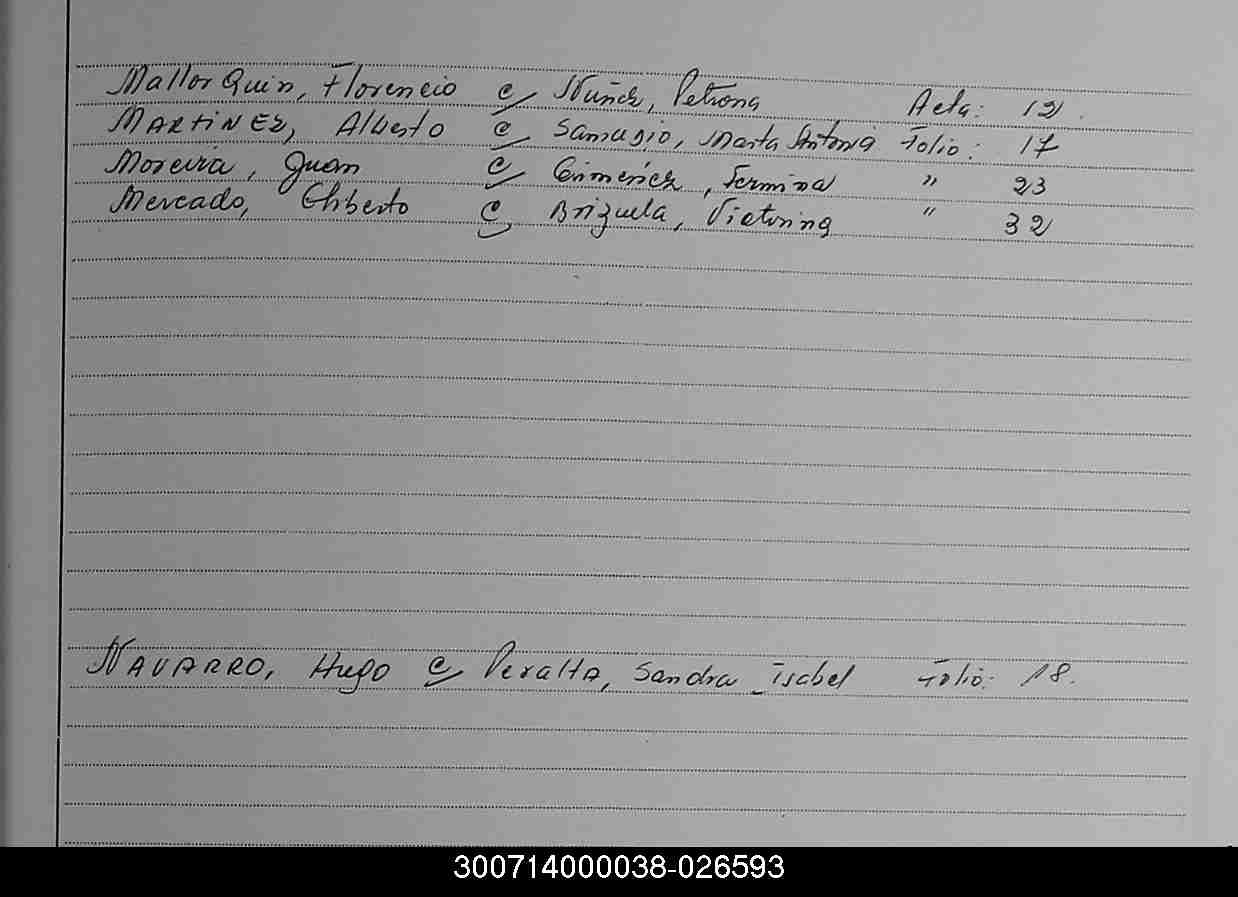 MallorQuin, Florencio c/ Nuñez, Petrona Acta: 12.
MARTINEZ, Alberto c/ Samudio, Marta Antonia Folio: 17
Moreira, Juan c/ Giménez, Fermina " 23
Mercado, Eliberto c/ Brizuela, Victorina " 32
NAVARRO, Hugo c/ Peralta, Sandra Isabel Folio: 18.
300714000038-026593